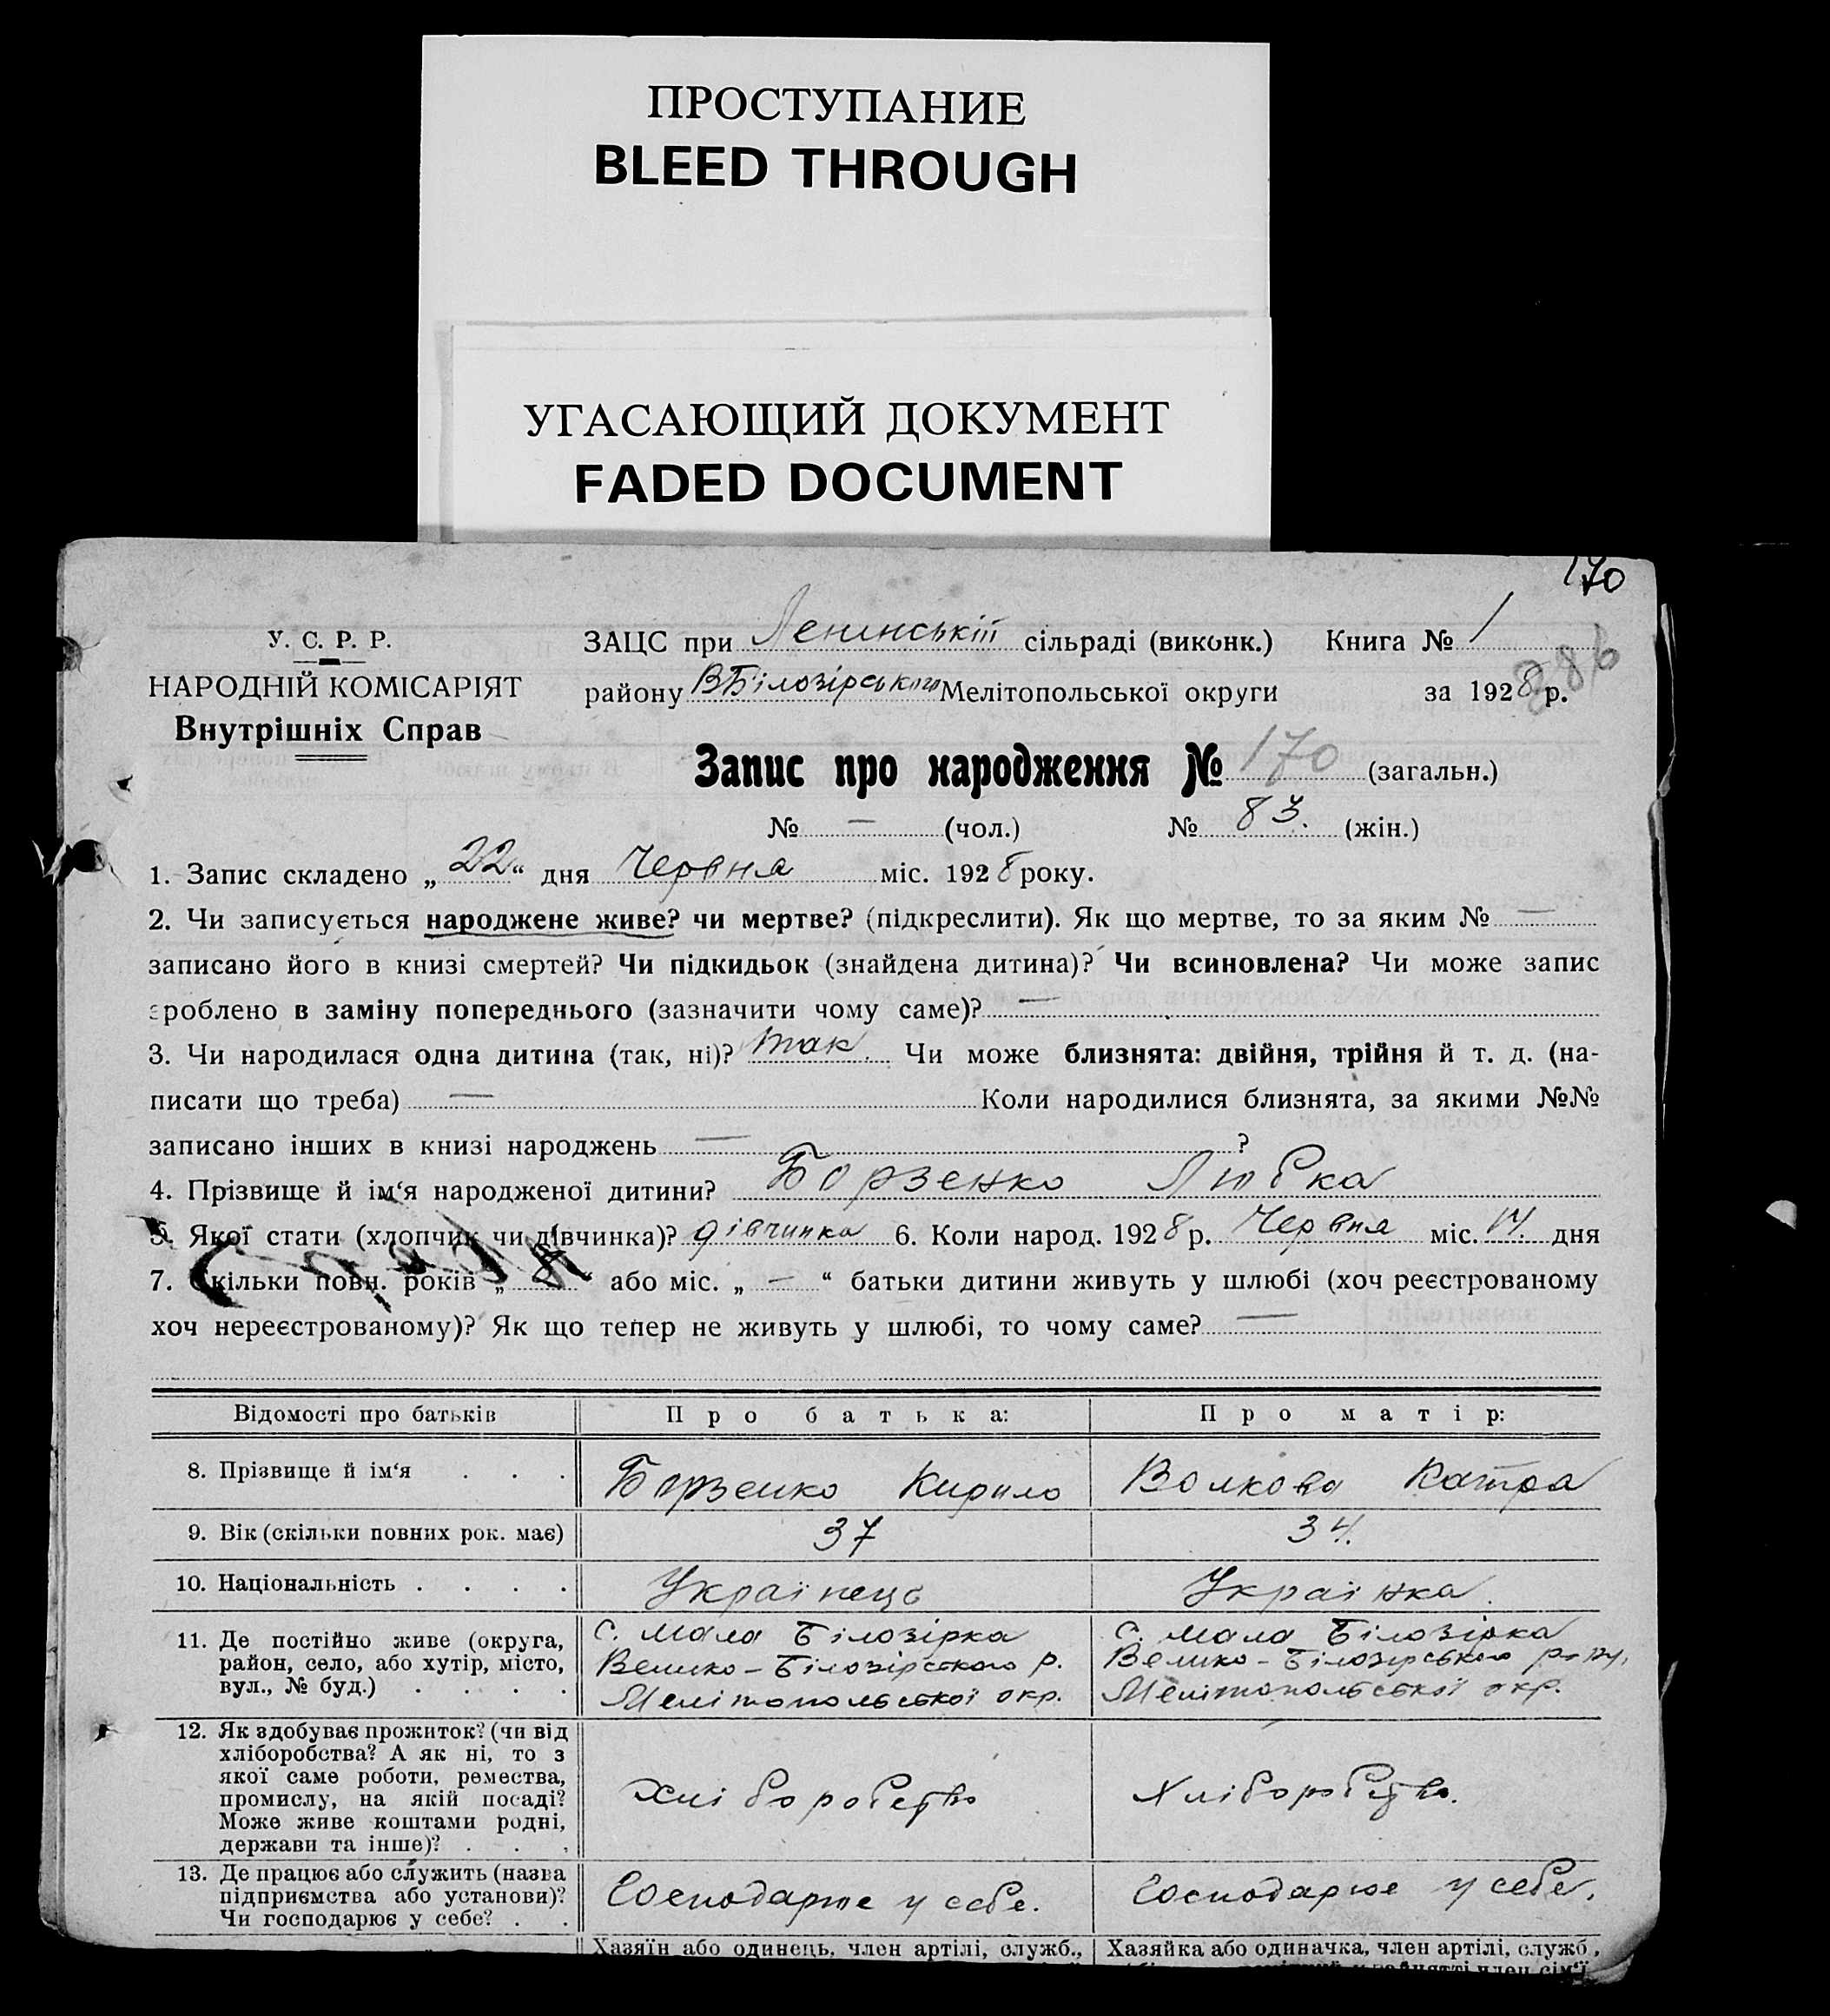 ПРОСТУПАНИЕ
BLEED THROUGH
УГАСАЮЩИЙ ДОКУМЕНТ
FADED DOCUMENT
170
У. С. Р. Р.
НАРОДНІЙ КОМІСАРІЯТ
Внутрішніх Справ
ЗАЦС при Ленинській сільраді (виконк.) Книга № 1
району ВБілозірського Мелітопольської округи за 1928 р.
286
Запис про народження № 170 (загальн.)
№ — (чол.) № 83. (жін.)
1. Запис складено „22“ дня Червня міс. 1928 року.
2. Чи записується народжене живе? чи мертве? (підкреслити). Як що мертве, то за яким № —
записано його в книзі смертей? Чи підкидьок (знайдена дитина)? Чи всиновлена? Чи може запис
зроблено в заміну попереднього (зазначити чому саме)? —
3. Чи народилася одна дитина (так, ні)? так. Чи може близнята: двійня, трійня й т. д. (на-
писати що треба) — Коли народилися близнята, за якими №№
записано інших в книзі народжень — ?
4. Прізвище й ім‘я народженої дитини? Борзенко Любка
5. Якої стати (хлопчик чи дівчинка)? дівчинка 6. Коли народ. 1928 р. Червня міс. 14. дня
7. Скільки повн. років „8“ або міс. „—“ батьки дитини живуть у шлюбі (хоч реєстрованому
хоч нереєстрованому)? Як що тепер не живуть у шлюбі, то чому саме? —
Відомості про батьків Про батька: Про матір:
8. Прізвище й ім‘я . . . Борзенко Кирило Волкова Катра
9. Вік (скільки повних рок. має) 37 34.
10. Національність . . . . Українець Українка.
11. Де постійно живе (округа, район, село, або хутір, місто, вул., № буд.) . . . .
с. Мала Білозірка
Велико-Білозірського р.
Мелітопольської окр.
с. Мала Білозірка
Велико-Білозірського р-ну,
Мелітопольської окр.
12. Як здобуває прожиток? (чи від
хліборобства? А як ні, то з
якої саме роботи, ремества,
промислу, на якій посаді?
Може живе коштами родні,
держави та інше)? . . .
Хліборобство Хліборобство.
13. Де працює або служить (назва
підприємства або установи)?
Чи господарює у себе? . .
Господарює у себе. Господарює у себе.
Хазяїн або одинець, член артілі, служб., Хазяйка або одиначка, член артілі, служб.,